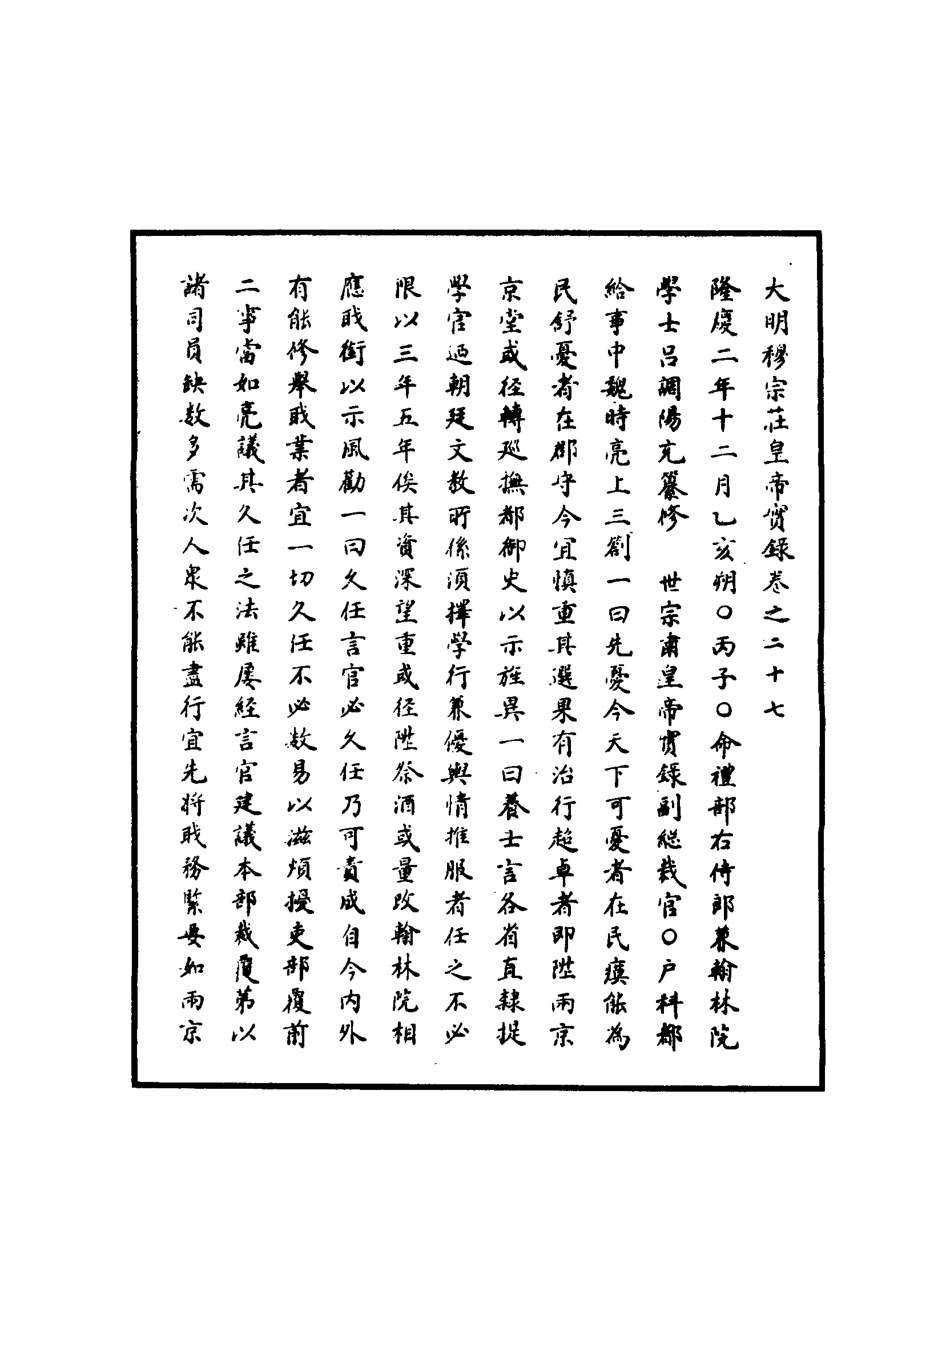 大明穆宗莊皇帝實錄卷之二十七
隆慶二年十二月乙亥朔〇丙子〇命禮部右侍郎兼翰林院
學士呂調陽充纂修　世宗肅皇帝實錄副總裁官〇户科都
給事中魏時亮上三劄一曰先憂今天下可憂者在民瘼能為
民舒憂者在郡守今宜慎重其選果有治行超卓者即陞兩京
京堂或径轉廵撫都御史以示旌異一曰養士言各省直隸提
學官廼朝廷文教所係湏擇學行兼優輿情推服者任之不必
限以三年五年俟其資深望重或径陞祭酒或量改翰林院相
應戝銜以示風勸一曰久任言官必久任乃可責成自今内外
有能修舉戝業者宜一切久任不必数易以滋煩擾吏部覆前
二事當如亮議其久任之法雖屡経言官建議本部裁覆苐以
諸司員缺数多需次人衆不能盡行宜先将戝務緊要如兩京